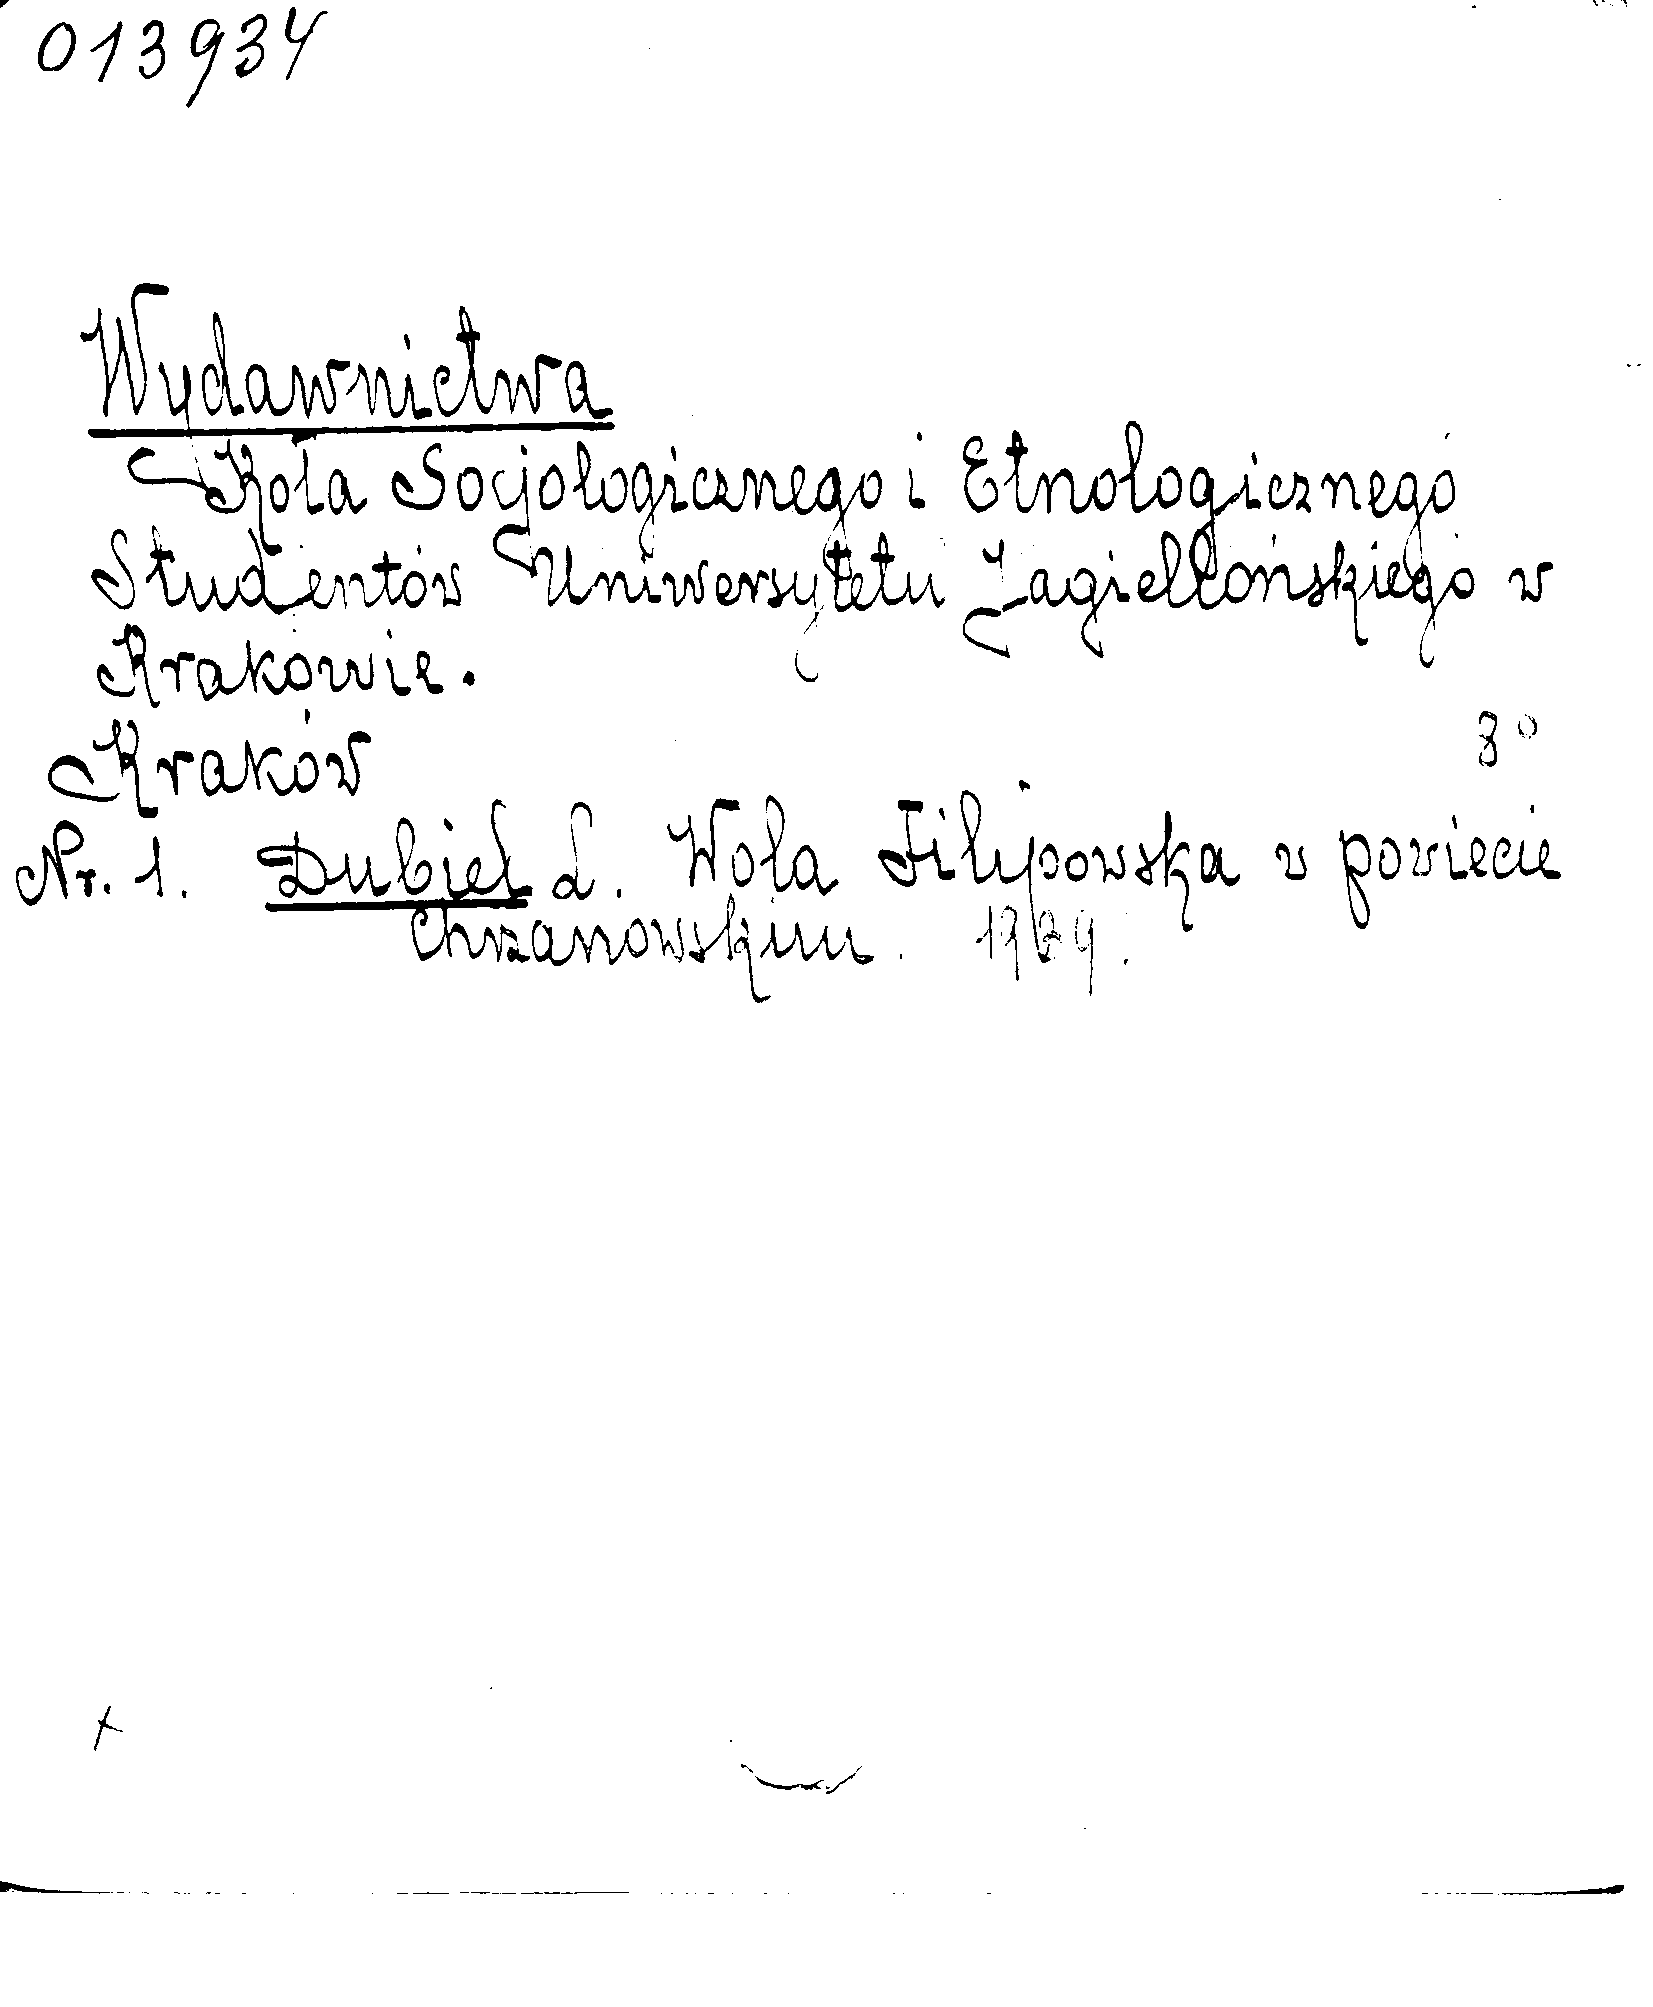 013934
Wydawnictwa
Koła Socjologicznego i Etnologicznego
Studentów Uniwersytetu Jagiellońskiego w
Krakowie.
Kraków 8°
Nr. 1. Dubiel L. Wola Filipowska w powiecie
Chrzanowskim. 1929.